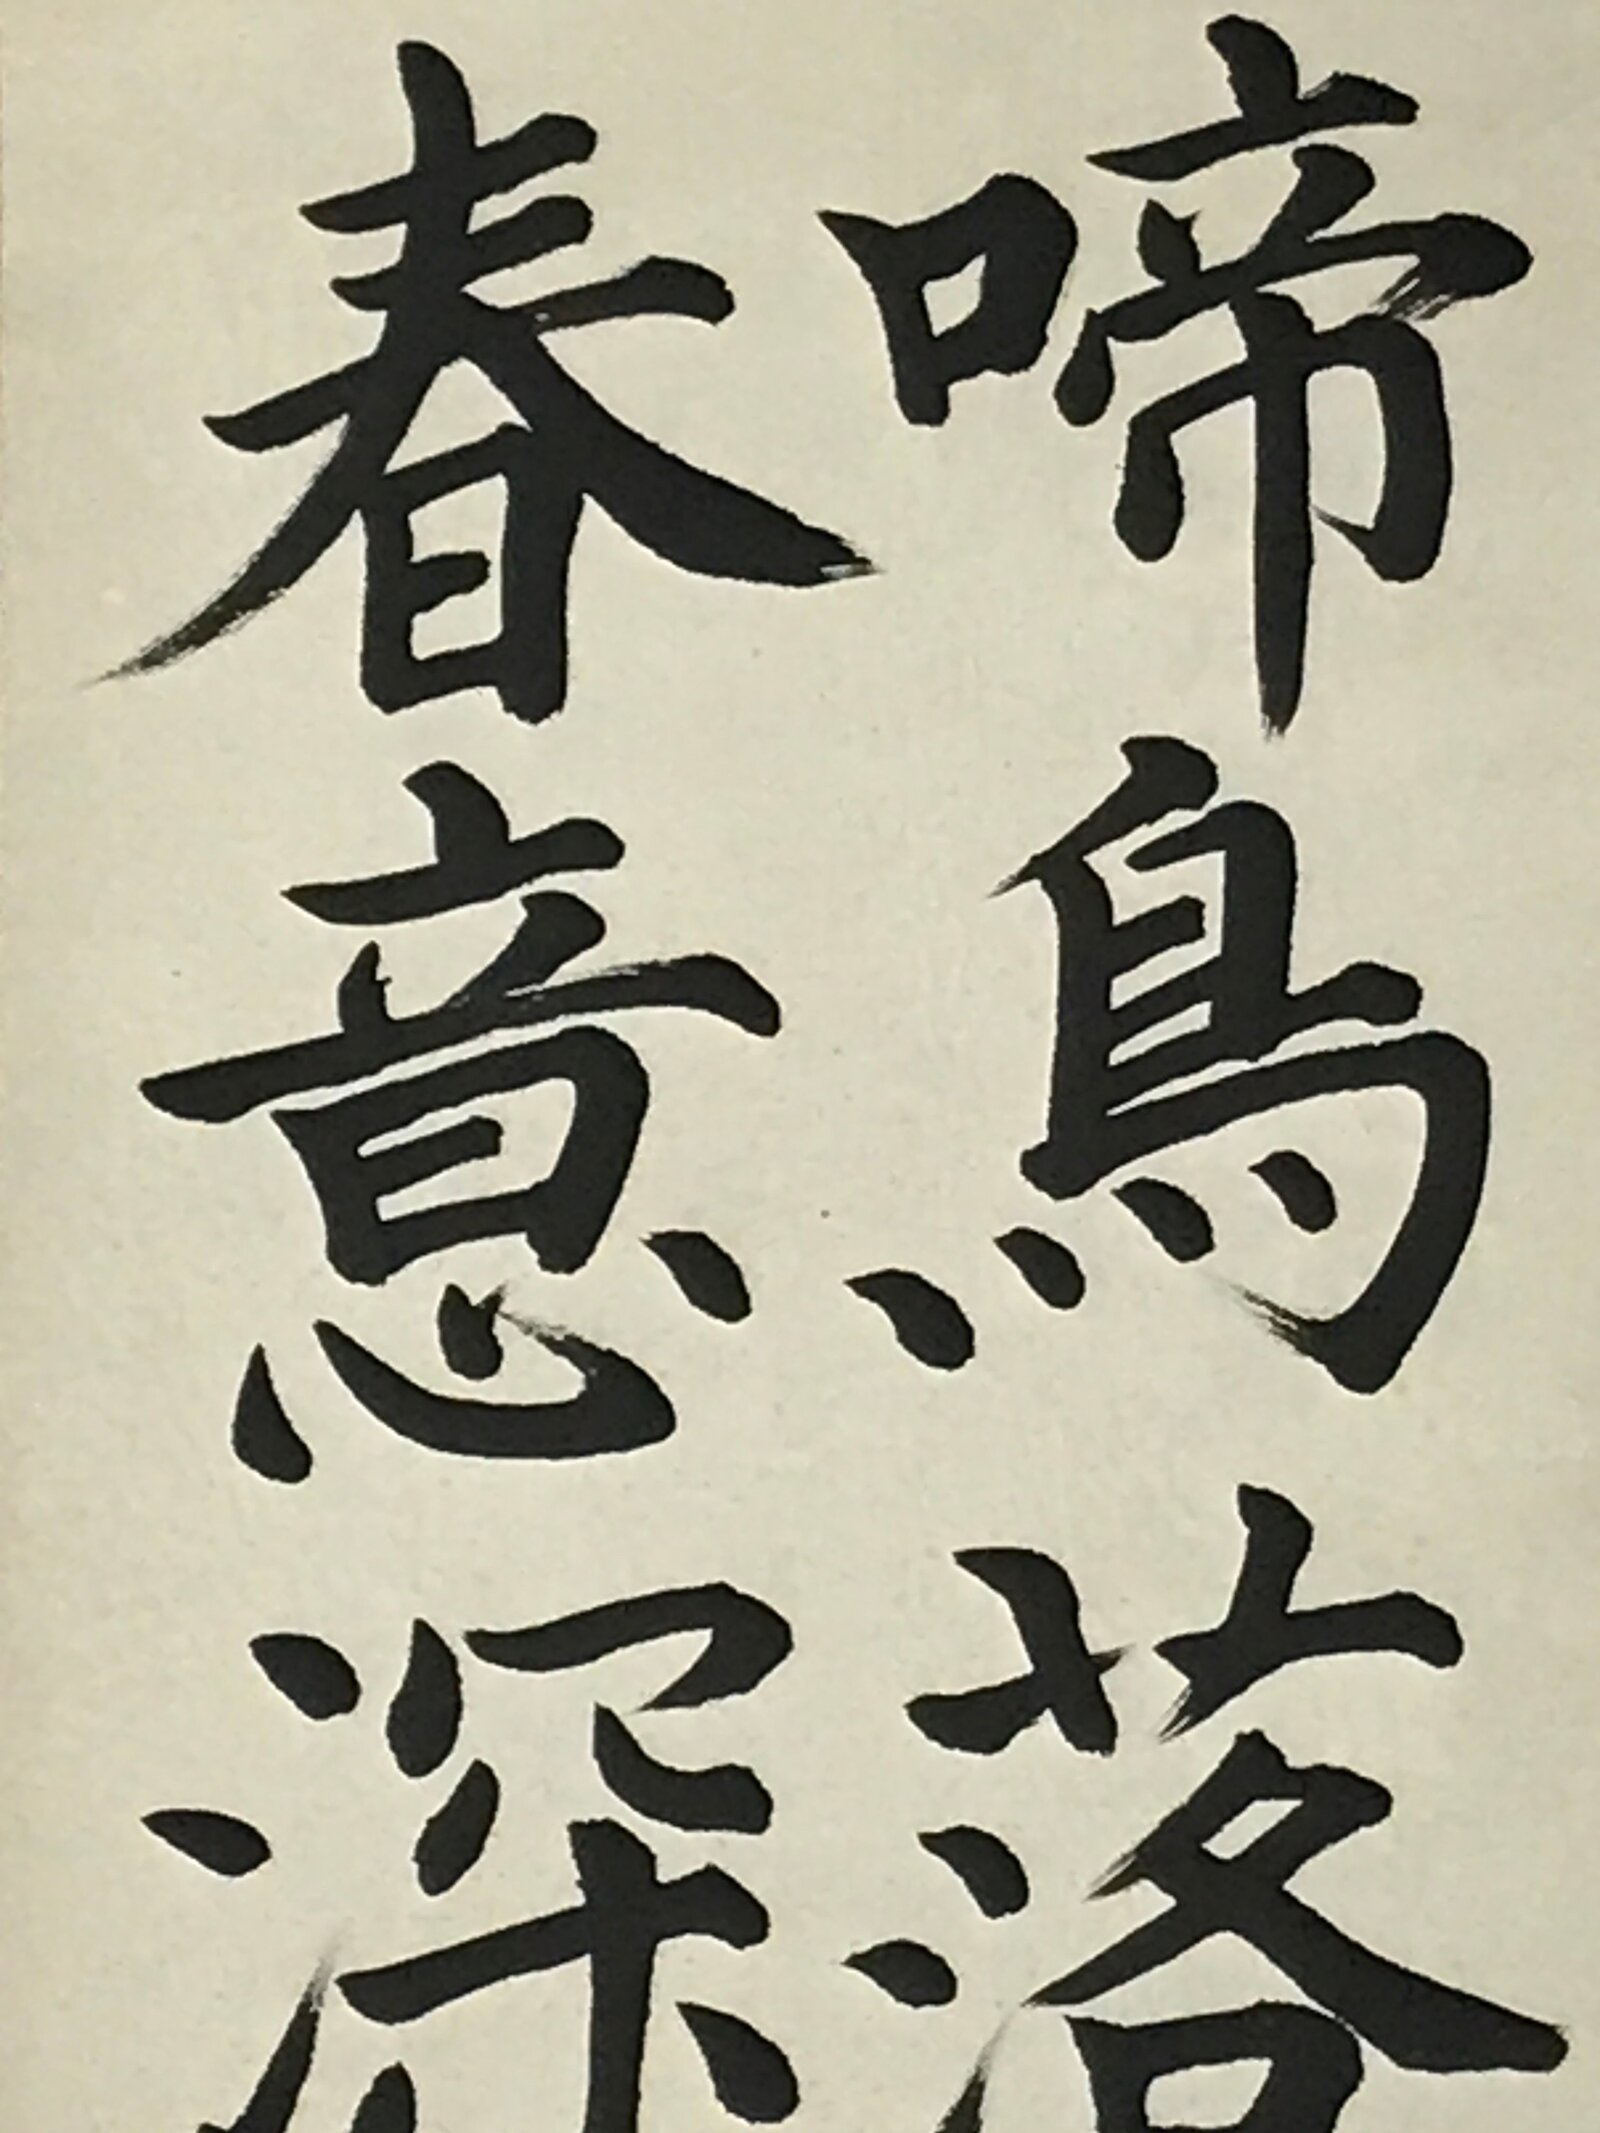 啼鳥落
春意深